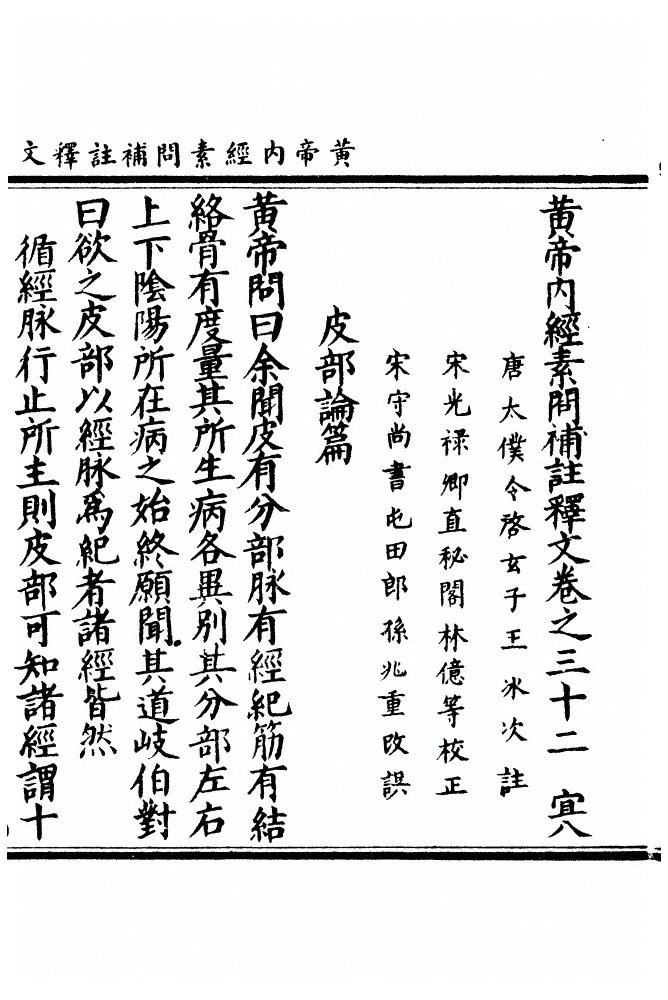 黄帝内經素問補註釋文
黄帝内經素問補註釋文卷之三十二 宜八
唐太僕令啓玄子王冰次註
宋光禄卿直秘閣林億等校正
宋守尚書屯田郎孫兆重改誤
皮部論篇
黄帝問曰余聞皮有分部脉有經紀筋有結
絡骨有度量其所生病各異別其分部左右
上下陰陽所在病之始終願聞其道岐伯對
曰欲之皮部以經脉爲紀者諸經皆然
循經脉行止所主則皮部可知諸經謂十